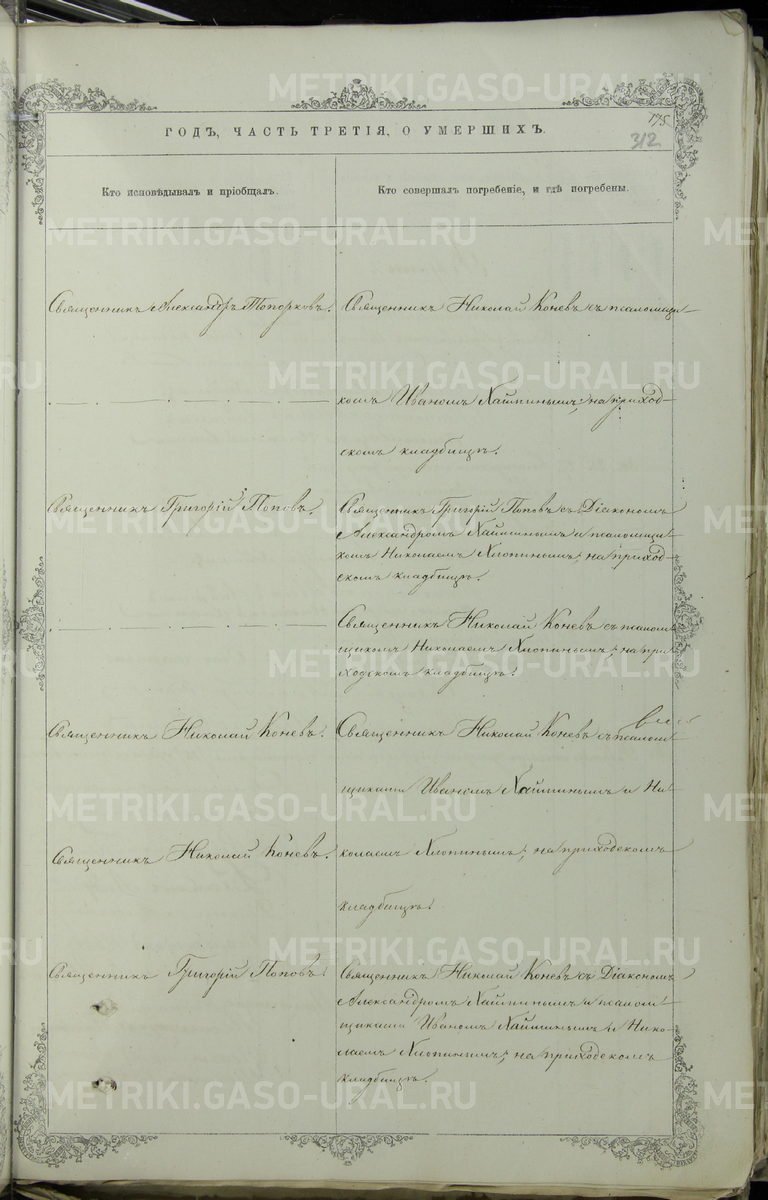 175
312
ГОДЪ, ЧАСТЬ ТРЕТІЯ, О УМЕРШИХЪ.
Кто исповѣдывалъ и пріобщалъ.
Кто совершалъ погребеніе, и гдѣ погребены.
Священникъ Александръ Топорковъ.
Священникъ Николай Коневъ съ псаломщи-
комъ Иваномъ Хайминымъ; на приход-
скомъ кладбищѣ.
Священникъ Григорій Поповъ.
Священникъ Григорій Поповъ съ Діакономъ
Александромъ Хайминымъ и псаломщи-
комъ Николаемъ Хлопинымъ; на приход-
скомъ кладбищѣ.
Священникъ Николай Коневъ съ псалом-
щикомъ Николаемъ Хлопинымъ; на при-
ходскомъ кладбищѣ.
Священникъ Николай Коневъ.
Священникъ Николай Коневъ съ псалом-
щиками Иваномъ Хайминымъ и Ни-
Священникъ Николай Коневъ.
колаемъ Хлопинымъ; на приходскомъ
кладбищѣ.
Священникъ Григорій Поповъ.
Священникъ Николай Коневъ съ Діакономъ
Александромъ Хайминымъ и псалом-
щиками Иваномъ Хайминымъ и Нико-
лаемъ Хлопинымъ; на приходскомъ
кладбищѣ.
METRIKI.GASO-URAL.RU